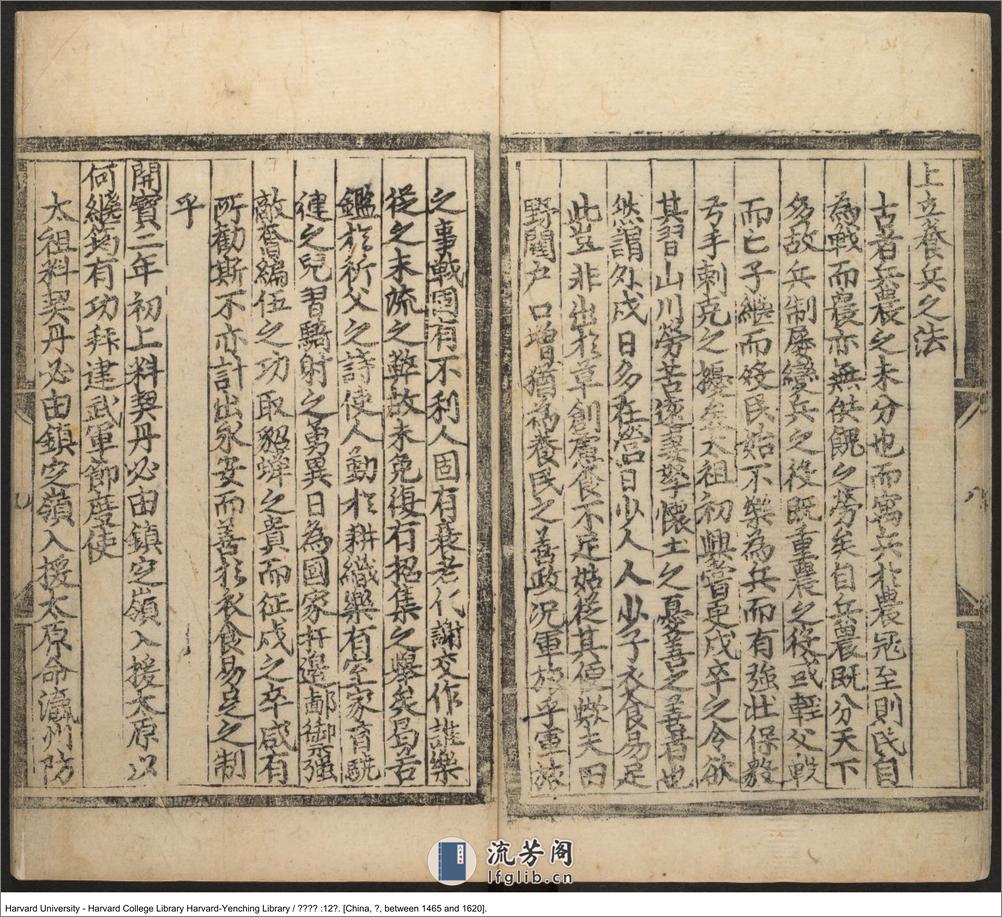 上立養兵之法
古者兵農之未分也而寓兵於農冦至則民自
為戰而農亦無供餽之勞矣自兵農既分天下
多故兵制屡變兵之役既重農之役或輕父戰
而亡子繼而役民始不樂為兵而有強壮保毅
弓手刺克之擾矣太祖初興嘗更戍卒之令欲
其習山川勞苦逺妻孥懷土之憂善之善者也
然謂外戍日多在營日少人人少子衣食易足
此豈非出於草創慮食不足姑從其便歟夫田
野闢户口增猶為養民之善政况軍旅乎軍旅
八
之事戰固有不利人固有衰老代謝交作誰樂
從之末流之弊故未免復有招集之舉矣曷若
鑑於祈父之詩使人動於耕織樂有室家育
連之兒習騎射之勇異日為國家扞邉鄙御強
敵奮編伍之功取貂蟬之貴而征戍之卒咸有
所勸斯不亦計出永安而善於衣食易足之制
乎
開寳二年初上料契丹必由鎮定嶺入援太原以
何繼筠有功拜建武軍節度使
太祖料契丹必由鎮定嶺入援太原命瀛州防
九
流芳阁
lfglib.cn
Harvard University - Harvard College Library Harvard-Yenching Library / ???? :12?. [China, ?, between 1465 and 1620].